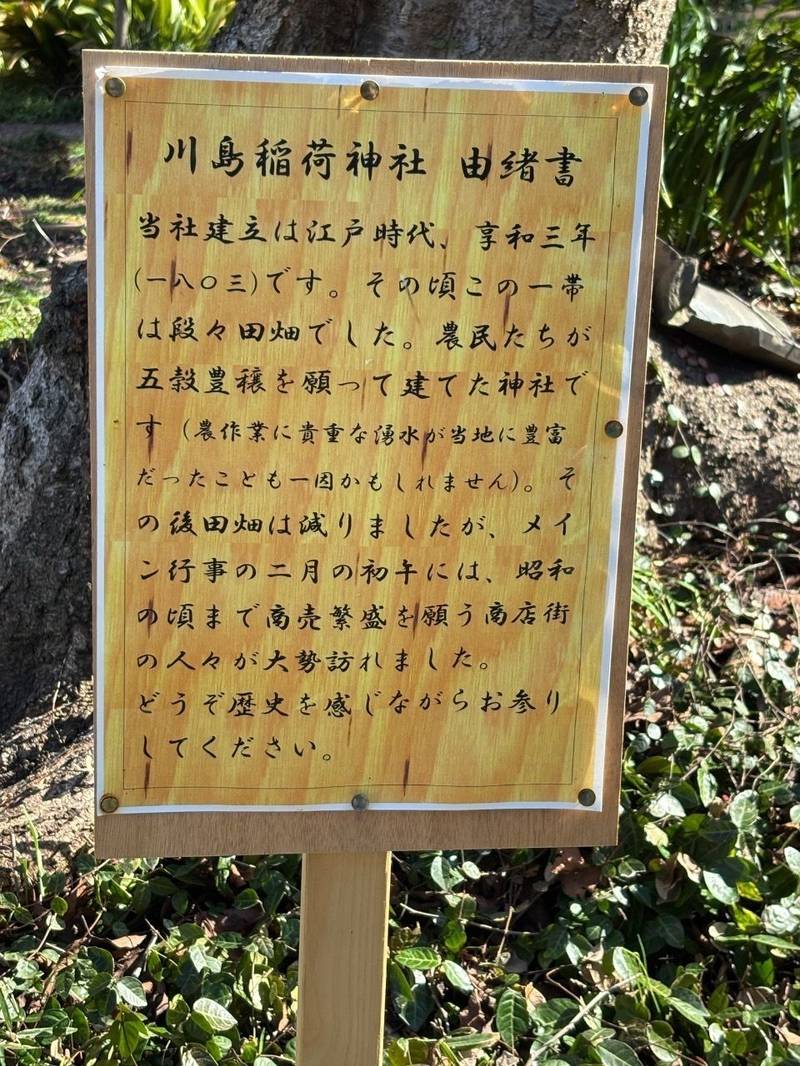 川島稲荷神社 由緒書
当社建立は江戸時代、享和三年
(一八〇三)です。その頃この一帯
は段々田畑でした。農民たちが
五穀豊穣を願って建てた神社で
す(農作業に貴重な湧水が当地に豊富
だったことも一因かもしれません)。そ
の後田畑は減りましたが、メイ
ン行事の二月の初午には、昭和
の頃まで商売繁盛を願う商店街
の人々が大勢訪れました。
どうぞ歴史を感じながらお参り
してください。